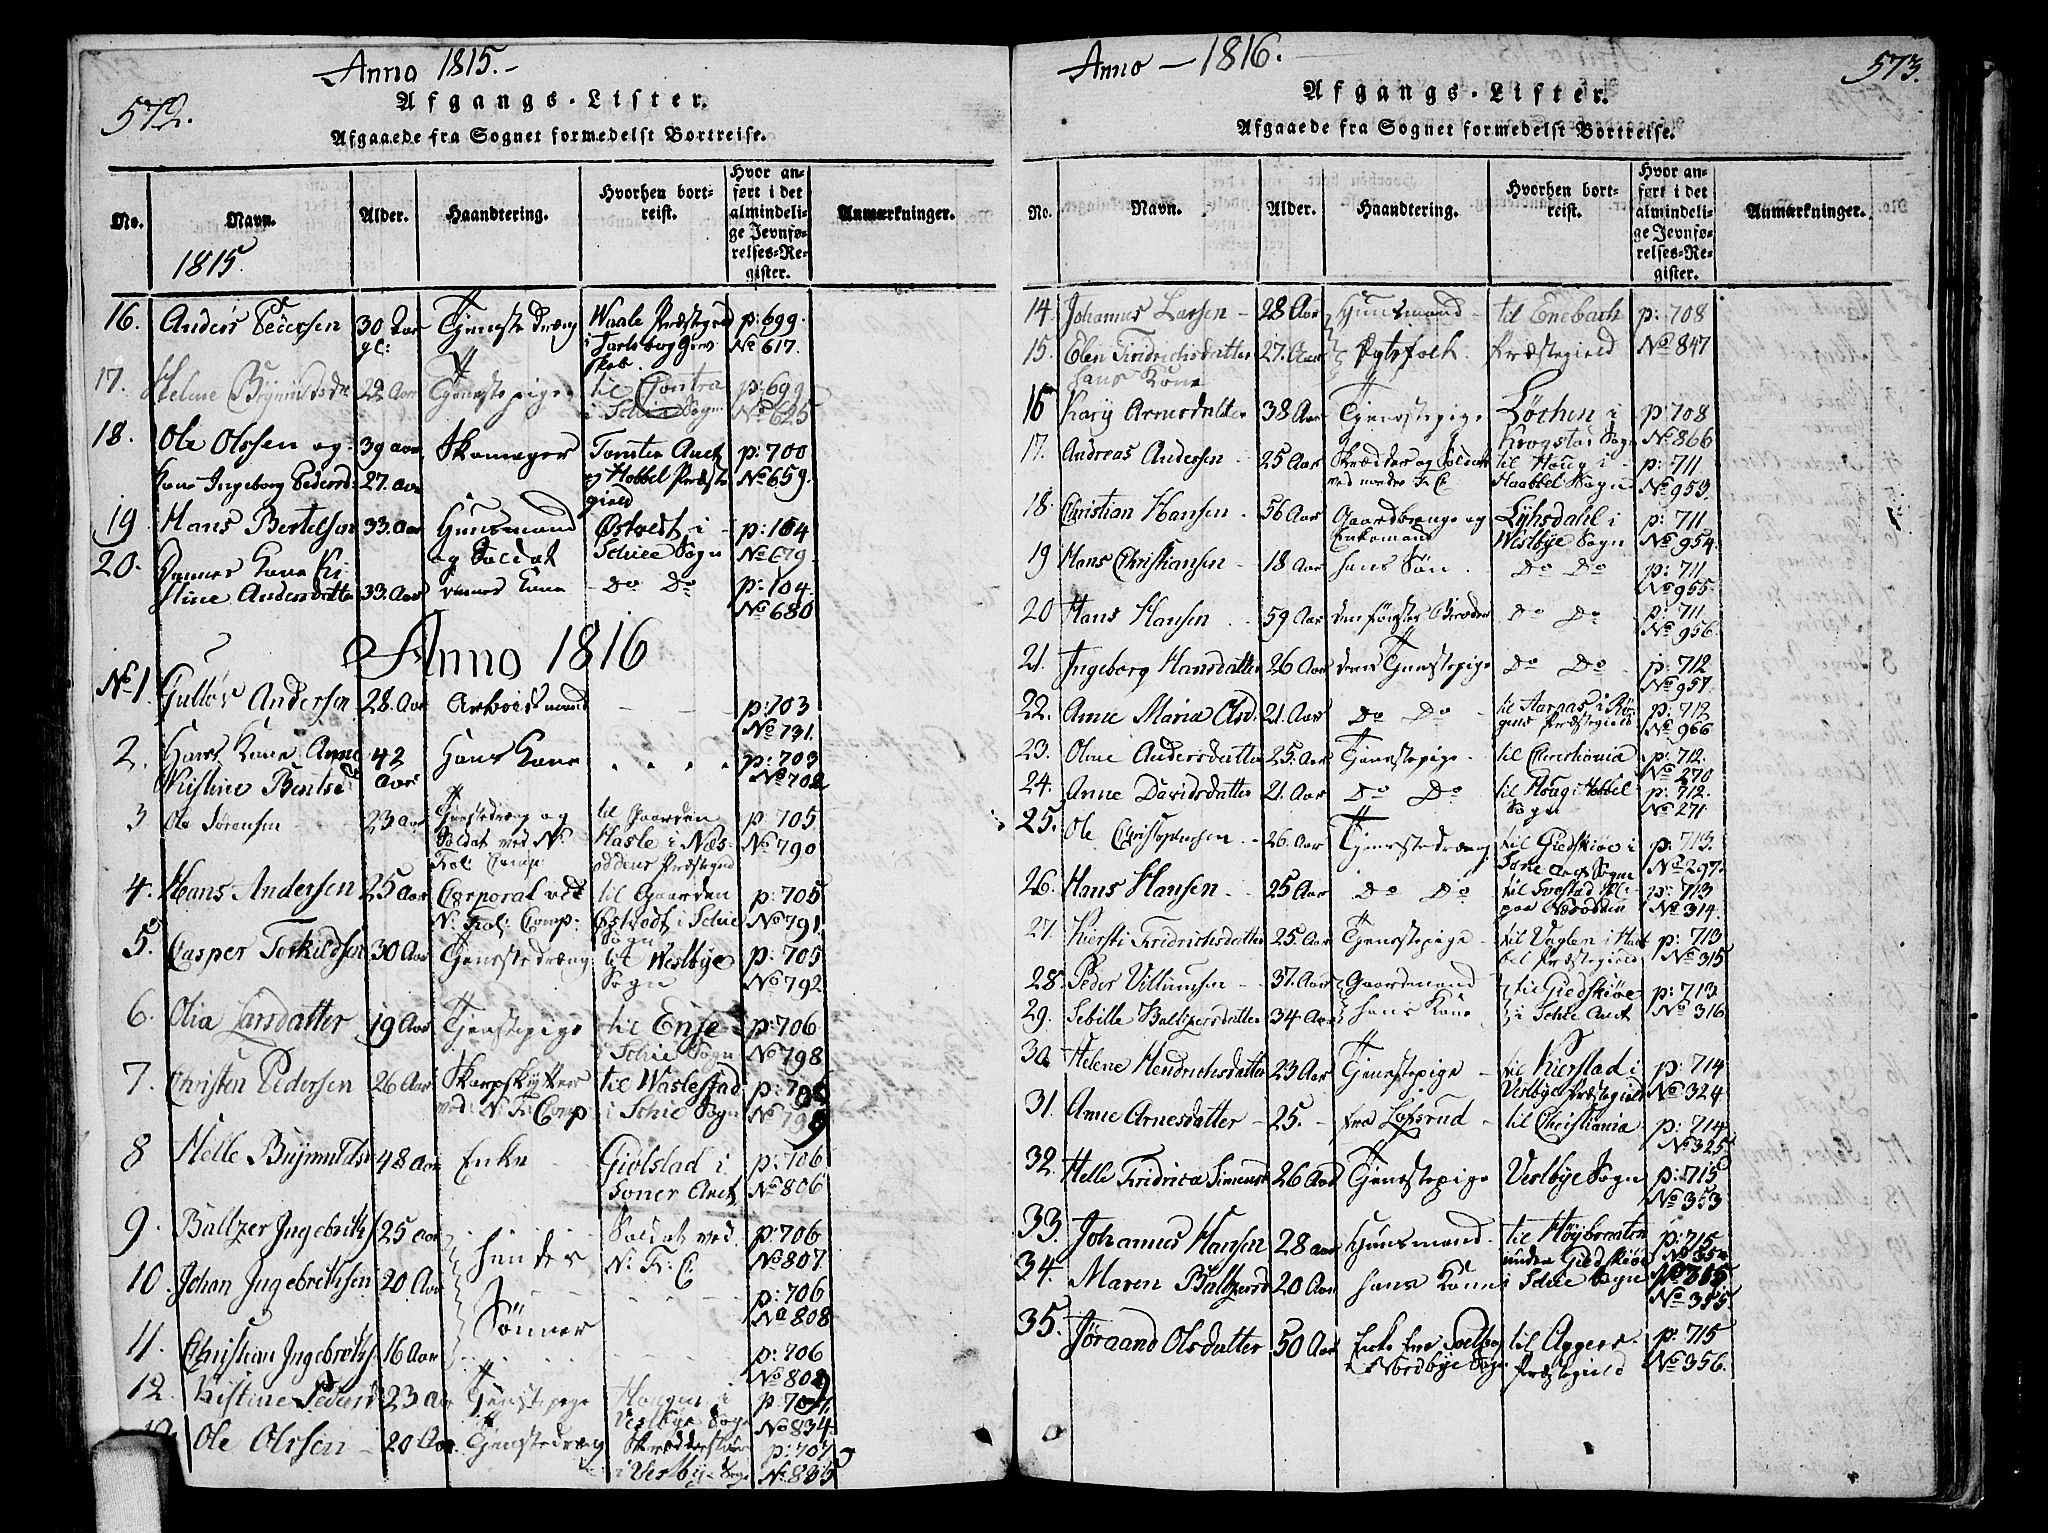 Anno 1815.
572.
Afgangs-Lister.
Afgaaede fra Sognet formedelst Bortreise.
No. Navn. Alder. Haandtering. Hvorhen bortreist. Hvor anført i det almindelige Jevnførelses-Register. Anmærkninger.
1815.
16. Anders Pedersen 30 Aar gl: Tjenestedræng Waale Præstegield p: 699 No 617.
17. 22 Aar Tjenestepige til i Schie Sogn p: 699 No 625
18. Ole Olssen og 39 aar Skomager p: 700
Kone Ingeborg Pedersd: 27. aar og Hobbel Præstegield No 659.
19 Hans Bertelsen 33. aar Huusmand og Soldat Østvedt i Schiee Sogn p: 104 No 679.
20. Dennes Kone Kistine Andersdatter 33. Aar dennes Kone Do Do p: 104. No 680
Anno 1816
No 1. Andersen 28. Aar Arbeidsmand p: 703 No 731.
2. Hans Kone Anne Kistine Bentsd 42 Aar Hans Kone p: 703 No 702
3 Ole Sørensen 23 aar Tjenestedræng og Soldat ved N: til Gaarden Hasle i Næsoddens Præstegield p: 705 No 790
4. Hans Andersen 25 Aar Corporal ved N: Comp: til Gaarden Østvedt i Schie Sogn p: 705 No 791.
5. Casper Torkildsen 30 Aar Tjenestedræng til Westbye Sogn p: 705 No 792.
6. Olia Larsdatter 19 Aar Tjenestepige til Enge i Schie Sogn p: 706 No 798
7. Christen Pedersen 26 Aar Skarpskytter ved N: Fr: Comp til i Schie Sogn p: 706 No 799
8 Helle 48 Aar Enke Giølstad i Soner Anex p: 706 No 806
9. Baltzer Ingebriths 25 aar hendes Soldat ved N: Fr: C: p: 706 No 807.
10. Johan Ingebrithsen 20 Aar Sønner p: 706 No 808
11. Christian Ingebriths 16 Aar p: 706 No 809
12. Kistine Pedersd 23 aar Tjenestepige Haugen i Vestbye Sogn p: 707. No 834.
Ole Olssen 20 Aar Tjenestedræng i Vestbye Sogn p: 707 No 835
Anno 1816.
573.
Afgangs-Lister.
Afgaaede fra Sognet formedelst Bortreise.
No. Navn. Alder. Haandtering. Hvorhen bortreist. Hvor anført i det almindelige Jevnførelses-Register. Anmærkninger.
14. Johannes Larsen 28 Aar Huusmand til Enebach p: 708
15. Elen Fridrichsdatter hans Kone 27. Aar Præstegield No 847
16 Kary Arnesdatter 38 Aar Tjenestepige Löchen i Krogstad Sogn p: 708 No 866
17. Andreas Andersen 25 Aar Skrædder og Soldat til Houg i Haabbel Sogn p: 711 No 953.
18. Christian Hansen 56 Aar Gaardbruger og Enkemand i Westbye Sogn p: 711 No 954.
19 Hans Christiansen 18 Aar hans Søn Do Do p: 711 No 955.
20 Hans Hansen 59 Aar Do Do p: 711. No 956.
21. Ingeborg Hansdatter 26 Aar deres Tjenestepige Do Do p: 712 No 957.
22. Anne Maria Olsd. 21. Aar Do Do til Aarnæs i Præstegield p: 712 No 966
23. Olme Andersdatter 25. Aar Tjenestepige til Christiania p: 712. No 270
24. Anne Davidsdatter 21. Aar Do Do til Houg i Hobbel Sogn p: 712. No 271
25. Ole Christophersen 26. Aar Tjenestedræng til Giedskiøe i Sogn p: 713. No 297.
26. Hans Hansen 25 Aar Do Do til paa Næsodden p: 713 No 314.
27. Kiersti Fridrichsdatter 25. Aar Tjenestepige til Vaglen i Hobbel Præstegield p: 713 No 315
28. Peder Villumsen 37. Aar Gaardmand til Giedskiøe p: 713
29. Sebille Baltzersdatter 34 Aar hans Kone i Schie Anex No 316
30 Helene Hendrichsdatter 23 Aar Tjenestepige til Kierstad i Vestbye Præstegield p: 714 No 324
31. Anne Arnesdatter 25. fra Lofsrud til Christiania p: 714. No 325.
32. Helle Fridrica Simensd 26 Aar Tjenestepige Vestbye Sogn p: 715 No 353
33. Johannes Hansen 28 aar Huusmand til Høybraaten under Giedskiøe p: 715 No 354
34. Maren Baltzersd 20 Aar hans Kone i Schie Sogn p: 715 No 355.
35. Jøraand Olsdatter 50 Aar Enke fra i Nordbye Sogn til Aggers Præstegield p: 715 No 356.